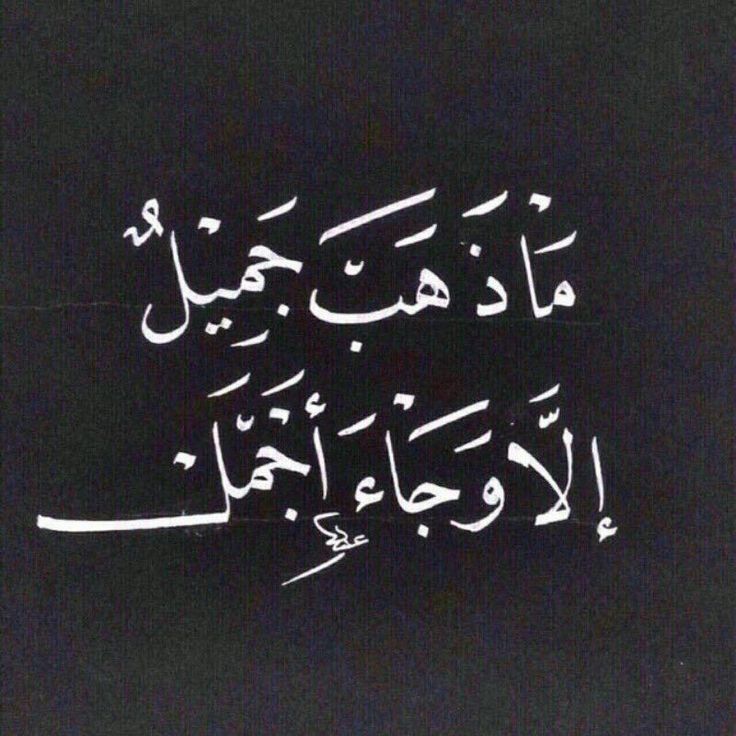 مَا ذَهَبَ جَمِيْلٌ
إلَّا وَجَاءَ أَجْمَل